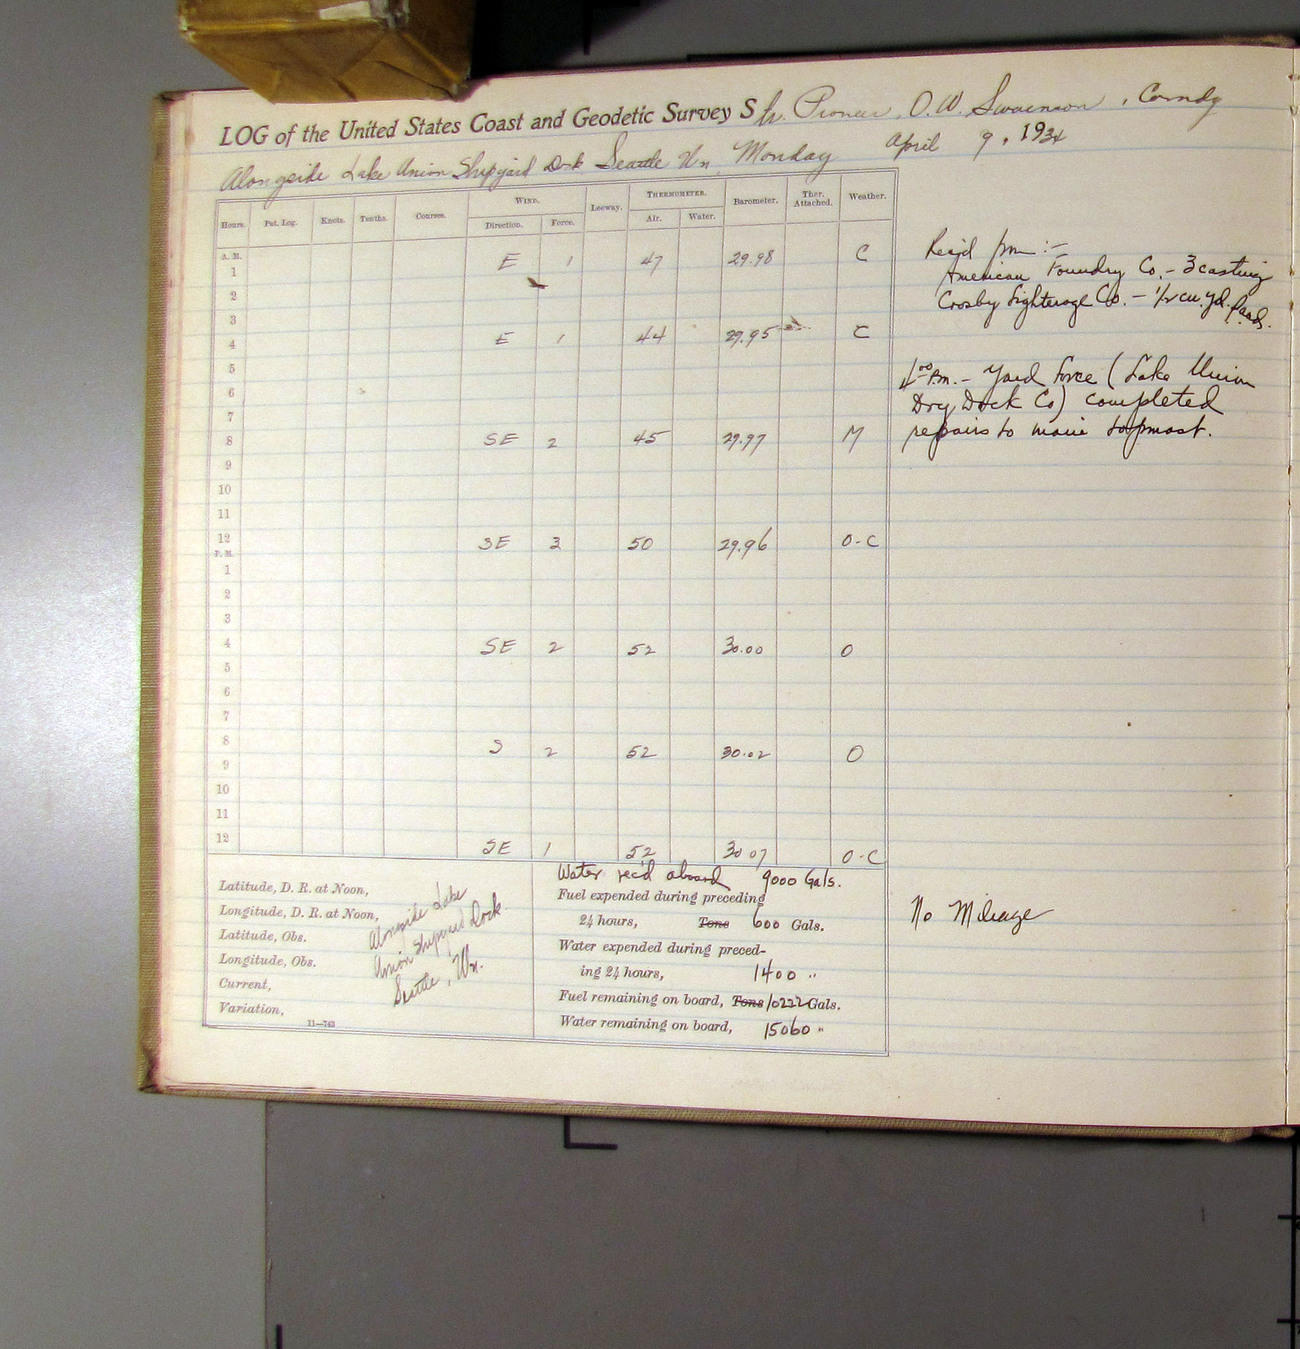 LOG of the United States Coast and Geodetic Survey Str. Pioneer, O. W. Swainson, Comndg
Alongside Lake Union Shipyard Dock Seattle Wn. Monday April 9, 1934
Hours. Pat. Log. Knots. Tenths. Courses. WIND. Leeway. THERMOMETER. Barometer. Ther. Attached. Weather.
Direction. Force. Air. Water.
A. M.
1 E 1 47 29.98 C
2
3
4 E 1 44 29.95 C
5
6
7
8 SE 2 45 29.97 M
9
10
11
12 SE 3 50 29.96 O-C
P. M.
1
2
3
4 SE 2 52 30.00 O
5
6
7
8 S 2 52 30.02 O
9
10
11
12 SE 1 52 30 07 O-C
Rec'd pm :-
American Foundry Co. - 3 casting
Crosby Lighterage Co. - 1/2 cu. yd.
4 00 P.M. - Yard force (Lake Union
Dry Dock Co) completed
repairs to main topmast.
No Mileage
Latitude, D. R. at Noon,
Longitude, D. R. at Noon,
Latitude, Obs.
Longitude, Obs.
Current,
Variation,
11—763
Alongside Lake
Union Shipyard Dock.
Seattle, Wn.
Water rec'd aboard 9000 Gals.
Fuel expended during preceding
24 hours, Tons 600 Gals.
Water expended during preced-
ing 24 hours, 1400 "
Fuel remaining on board, Tons 10222 Gals.
Water remaining on board, 15060 "